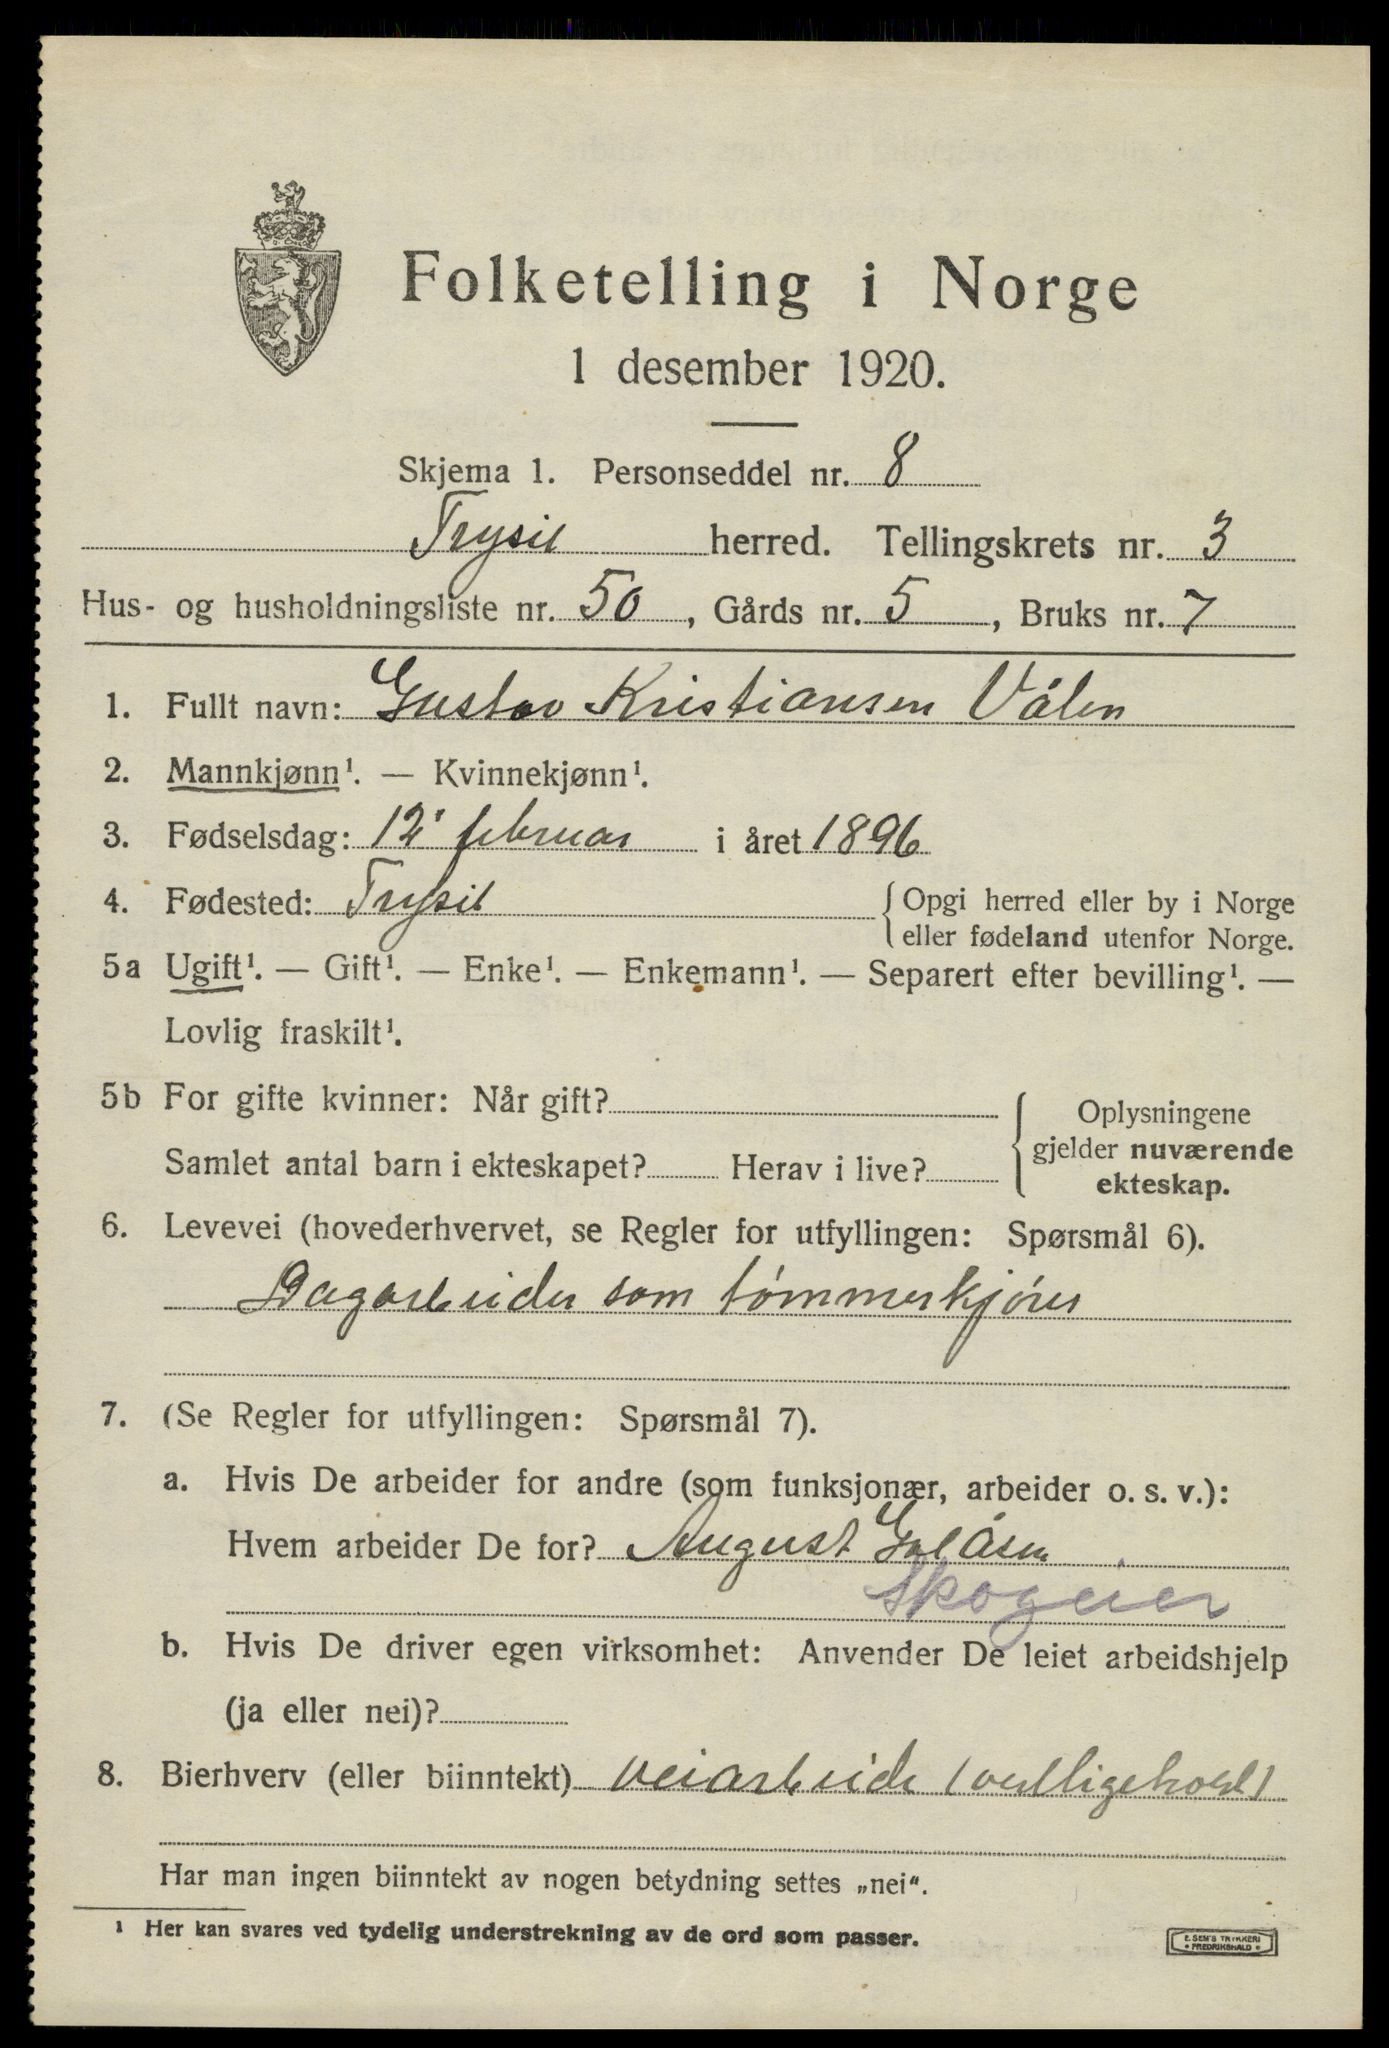 Folketelling i Norge
1 desember 1920.
Skjema 1. Personseddel nr. 8
Trysil herred. Tellingskrets nr. 3
Hus- og husholdningsliste nr. 50, Gårds nr. 5, Bruks nr. 7
1. Fullt navn: Gustav Kristiansen Vålen
2. Mannkjønn¹. — Kvinnekjønn¹.
3. Fødselsdag: 12' februar i året 1896
4. Fødested: Trysil {Opgi herred eller by i Norge
eller fødeland utenfor Norge.
5a Ugift¹. — Gift¹. — Enke¹. — Enkemann¹. — Separert efter bevilling¹. —
Lovlig fraskilt¹.
5b For gifte kvinner: Når gift?
Samlet antal barn i ekteskapet? Herav i live?
{Oplysningene
gjelder nuværende
ekteskap.
6. Levevei (hovederhvervet, se Regler for utfyllingen: Spørsmål 6).
Dagarbeider som tømmerkjører
7. (Se Regler for utfyllingen: Spørsmål 7).
a. Hvis De arbeider for andre (som funksjonær, arbeider o. s. v.):
Hvem arbeider De for? August Galåsen
Skogeier
b. Hvis De driver egen virksomhet: Anvender De leiet arbeidshjelp
(ja eller nei)?
8. Bierhverv (eller biinntekt) veiarbeide (vedligehold)
Har man ingen biinntekt av nogen betydning settes „nei“.
1 Her kan svares ved tydelig understrekning av de ord som passer.
E. SEM'S TRYKKERI
• FREDRIKSHALD •